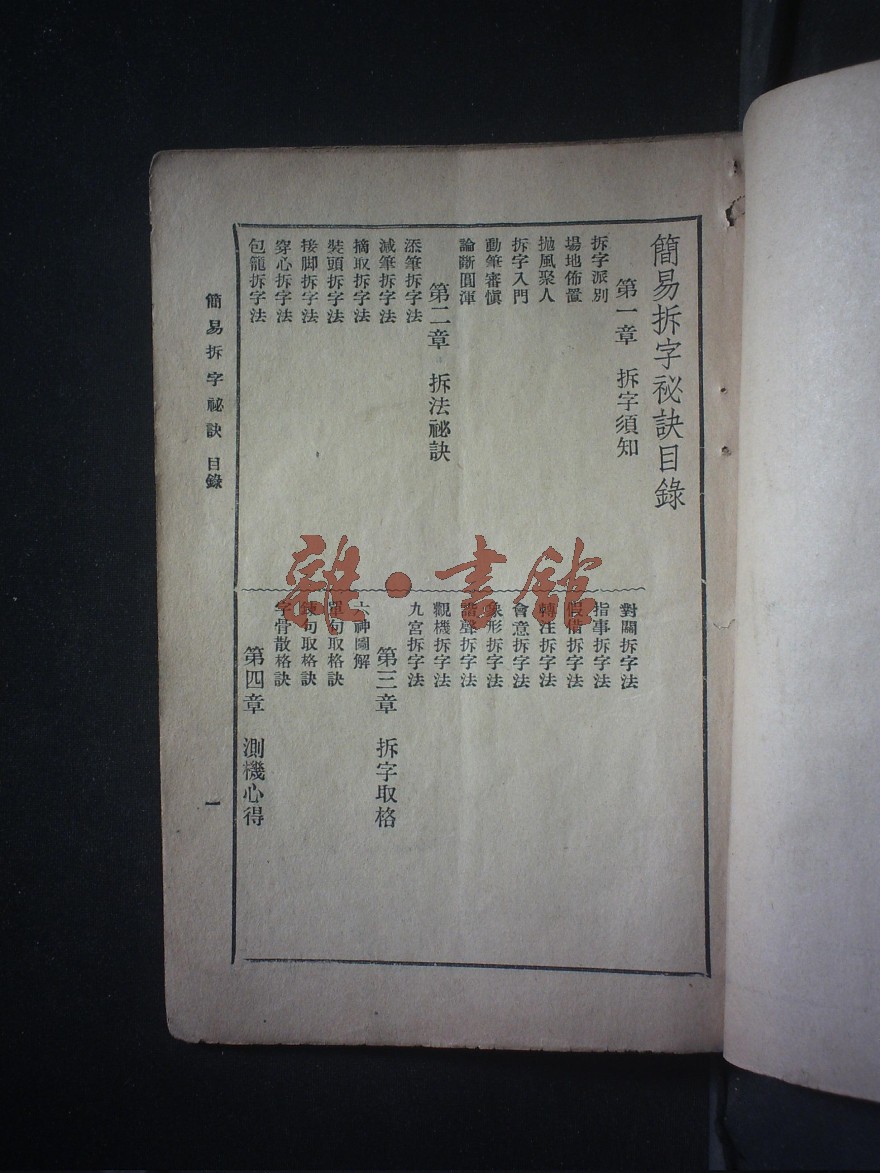 簡易拆字祕訣目錄
第一章 拆字須知
拆字派別
場地佈置
拋風聚人
拆字入門
動筆審愼
論斷圓渾
第二章 拆法祕訣
添筆拆字法
減筆拆字法
摘取拆字法
裝頭拆字法
接脚拆字法
穿心拆字法
包籠拆字法
對關拆字法
指事拆字法
假借拆字法
轉注拆字法
會意拆字法
象形拆字法
諧聲拆字法
觀機拆字法
九宮拆字法
第三章 拆字取格
六神圖解
單句取格訣
鍊句取格訣
字骨散格訣
第四章 測機心得
簡易拆字祕訣 目錄
一
雜·書館